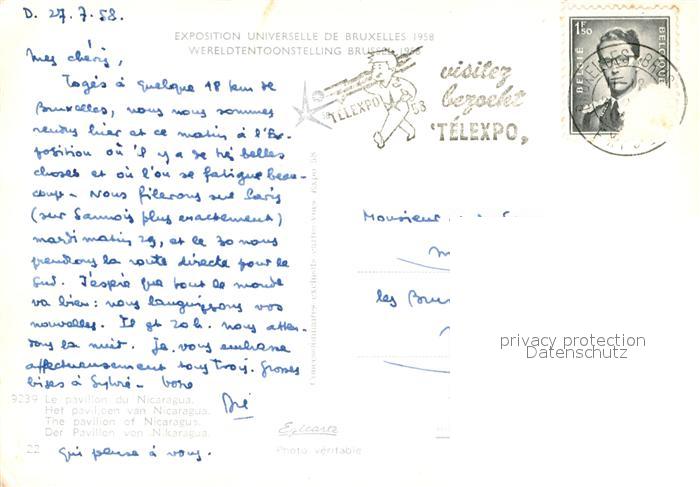 D. 27.7.58.
EXPOSITION UNIVERSELLE DE BRUXELLES 1958
WERELDTENTOONSTELLING BRUSSEL 1958
Mes chéris,
Logés à quelque 18 km de
Bruxelles, nous nous sommes
rendus hier et ce matin à l'Ex-
position où il y a de très belles
choses et où l'on se fatigue beau-
coup - Nous filerons sur Paris
(sur Sannois plus exactement)
mardi matin 29, et le 30 nous
prendrons la route directe pour le
Sud. J'espère que tout le monde
va bien : nous languissons vos
nouvelles. Il est 20h. nous atten-
dons la nuit. Je vous embrasse
affectueusement tous trois. Grosses
bises à Sylvie - votre
qui pense à vous.
TÉLEXPO 58
visitez
bezoekt
'TÉLEXPO,
1F50
BELGIË BELGIQUE
Monsieur
les
9239 Le pavillon du Nicaragua.
Het paviljoen van Nicaragua.
The pavilion of Nicaragua.
Der Pavillon von Nikaragua.
22
Photo véritable
privacy protection
Datenschutz